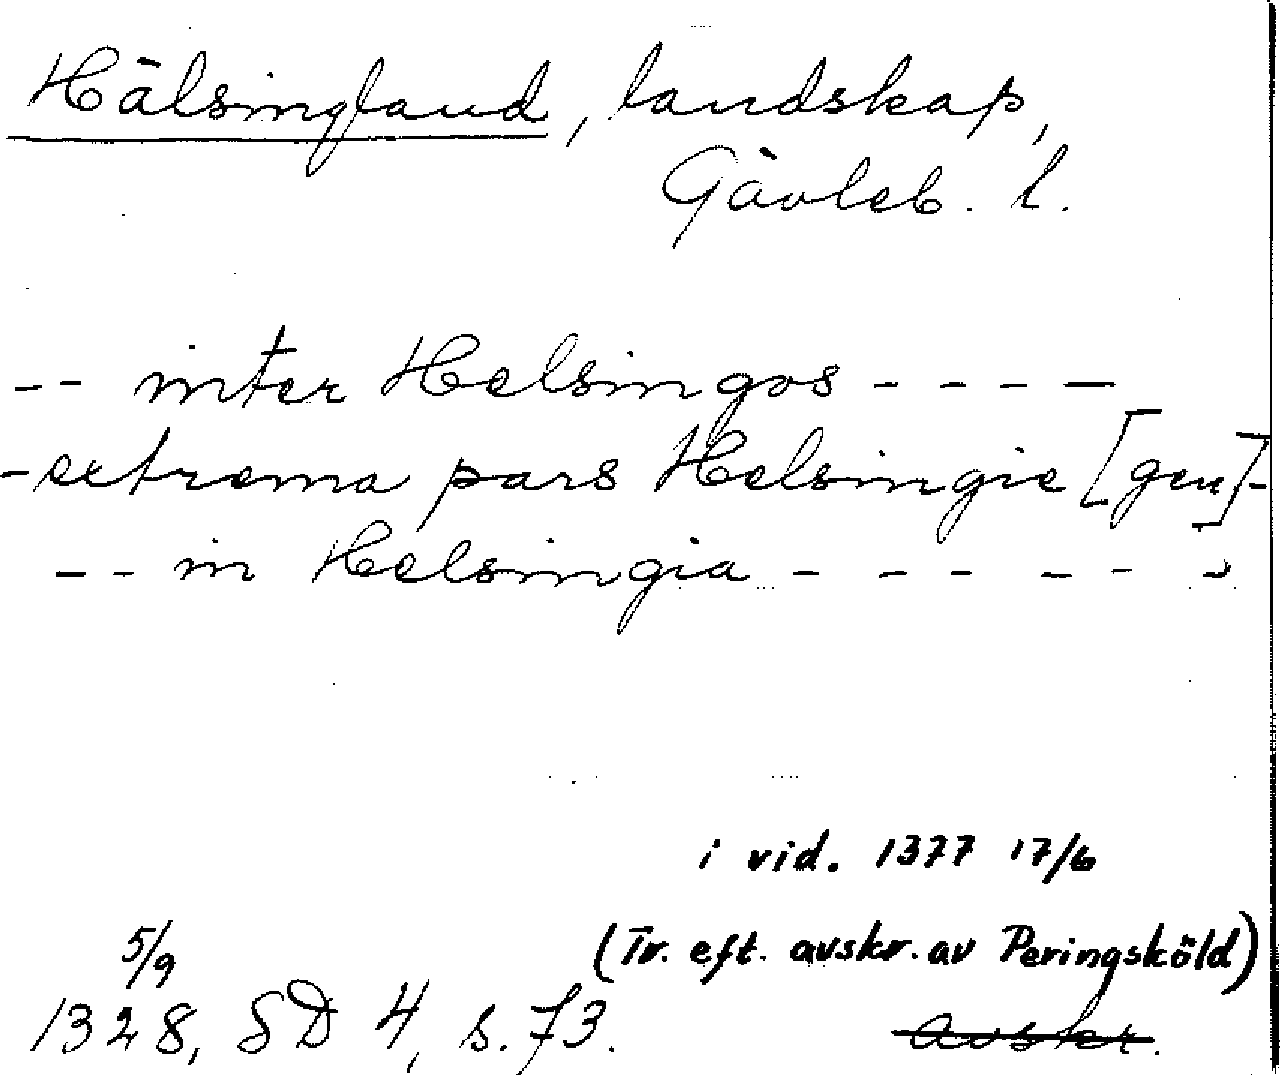 Hälsingland, landskap,
Gävleb. l.
-- inter Helsingos - - - -
- extrema pars Helsingie [gen] -
-- in Helsingia - - - - - -
i vid. 1377 17/6
(Tr. eft. avskr. av Peringsköld)
5/9
1328, SD 4, s. 73.
avskr.